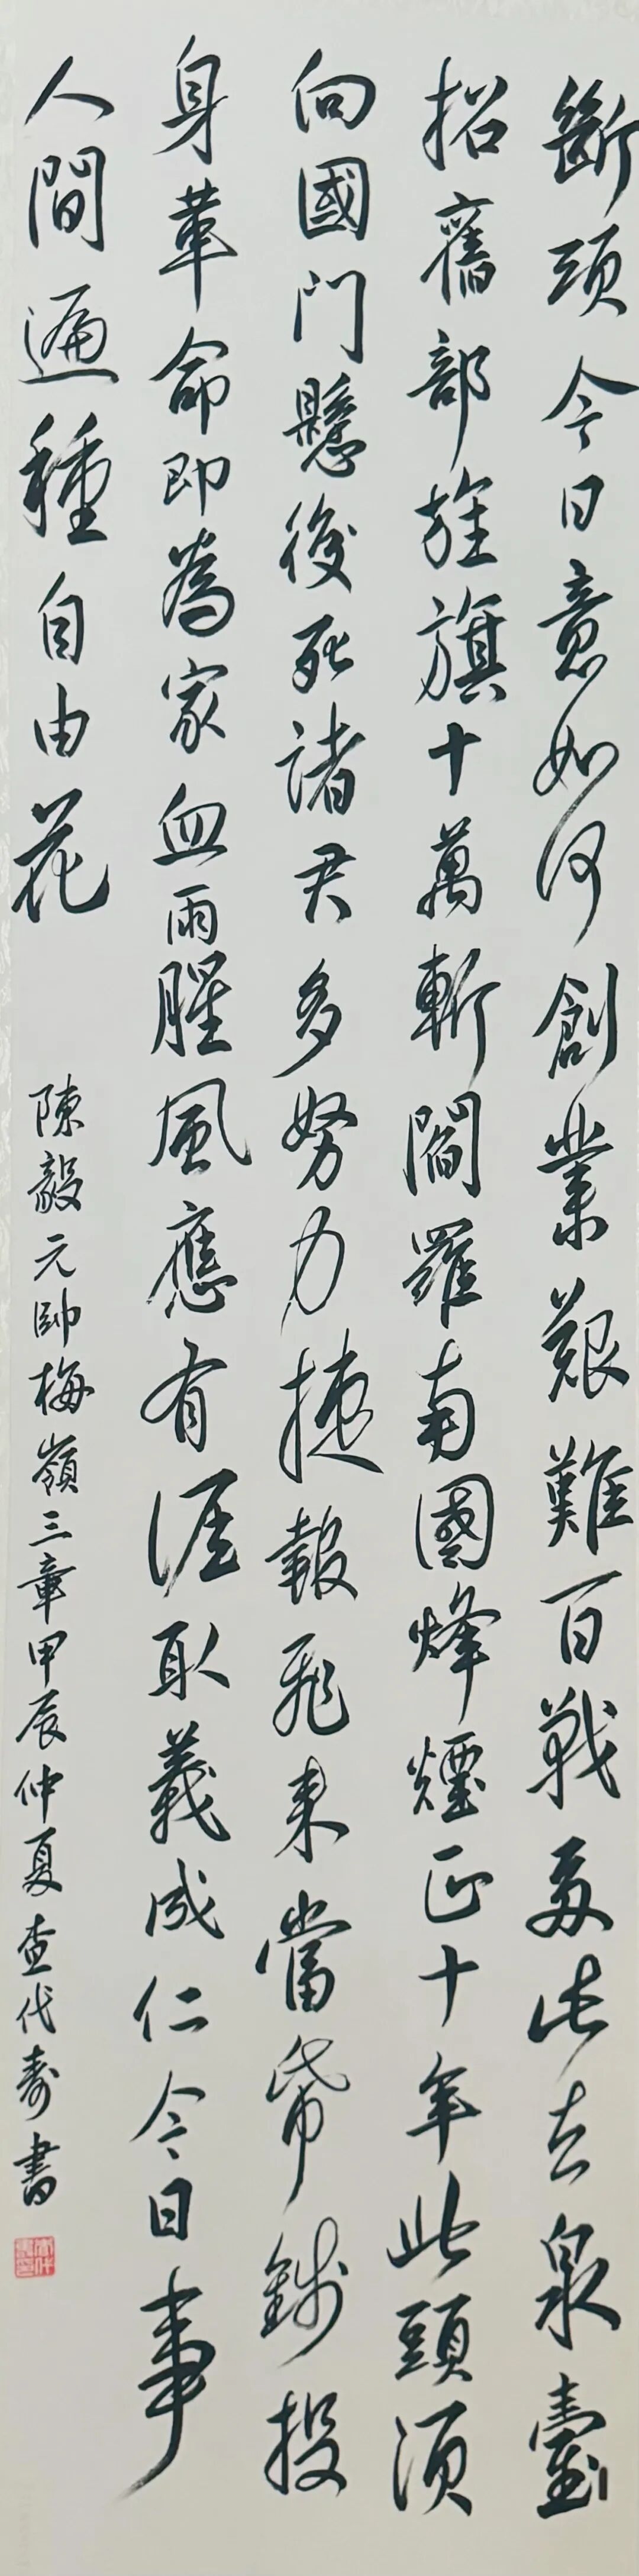 斷頭今日意如何創業艱難百戰多此去泉臺
招舊部旌旗十萬斬閻羅南國烽煙正十年此頭須
向國門懸後死諸君多努力捷報飛來當紙錢投
身革命即為家血雨腥風應有涯取義成仁今日事
人間遍種自由花
陳毅元帥梅嶺三章甲辰仲夏查代壽書